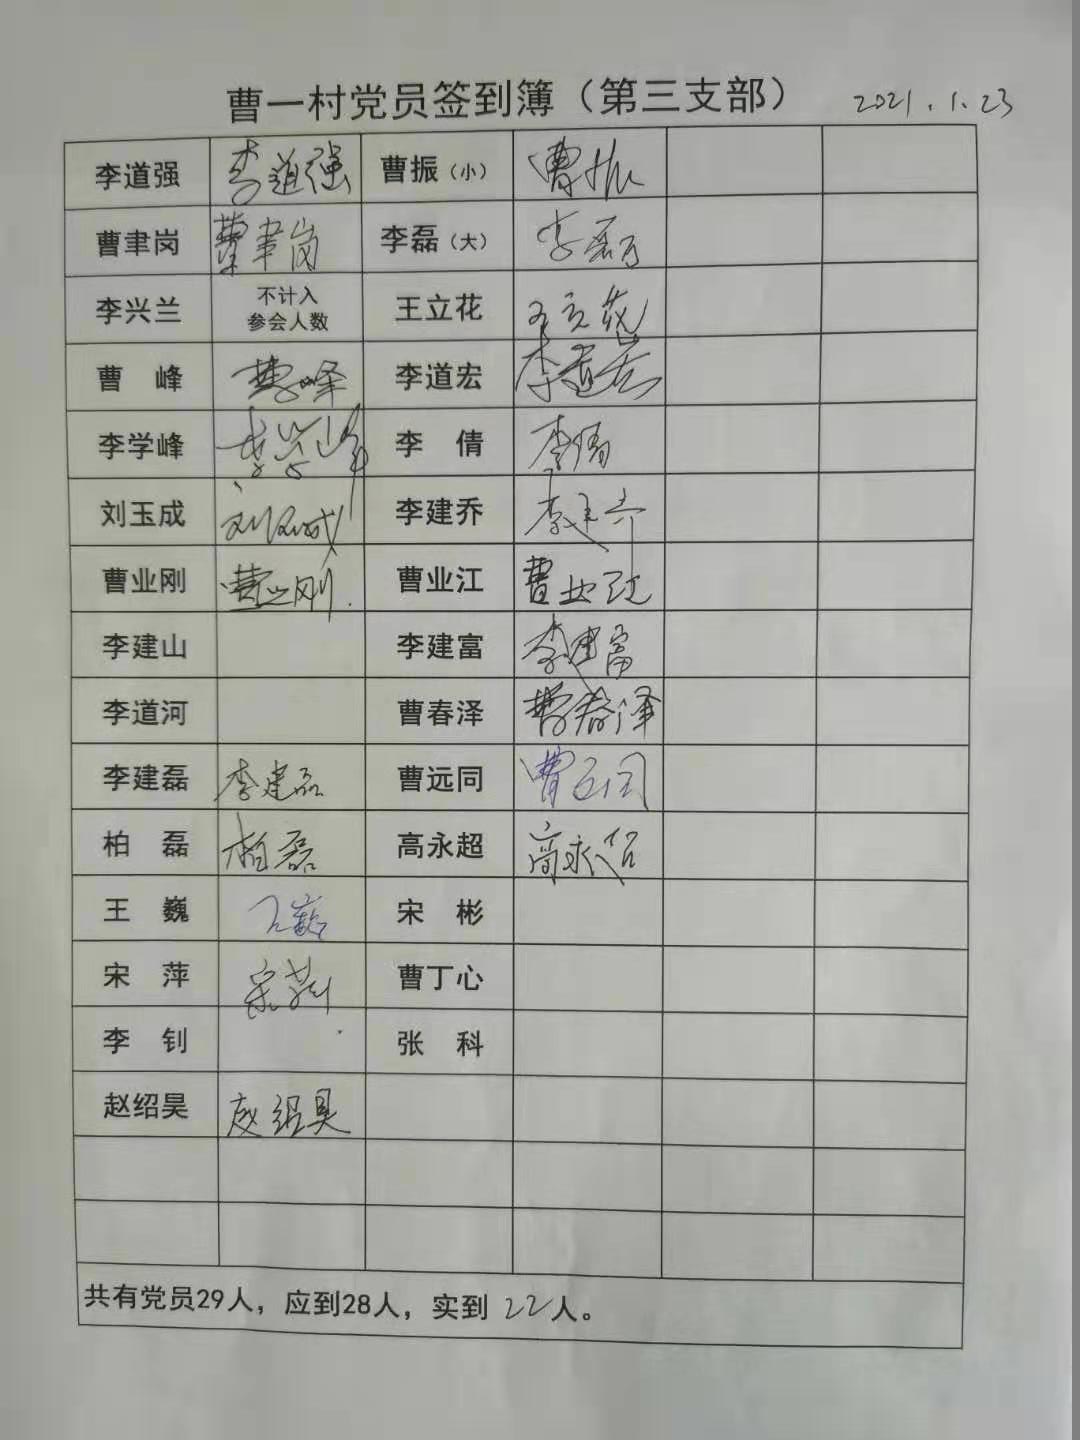 曹一村党员签到簿（第三支部） 2021.1.23
李道强 李道强 曹振（小） 曹振
曹聿岗 曹聿岗 李磊（大） 李磊
李兴兰 不计入 参会人数 王立花 王立花
曹 峰 曹峰 李道宏 李道宏
李学峰 李学峰 李 倩 李倩
刘玉成 刘玉成 李建乔 李建乔
曹业刚 曹业刚 曹业江 曹业江
李建山 李建富 李建富
李道河 曹春泽 曹春泽
李建磊 李建磊 曹远同 曹远同
柏 磊 柏磊 高永超 高永超
王 巍 王巍 宋 彬
宋 萍 宋萍 曹丁心
李 钊 张 科
赵绍昊 赵绍昊
共有党员29人，应到28人，实到 22人。